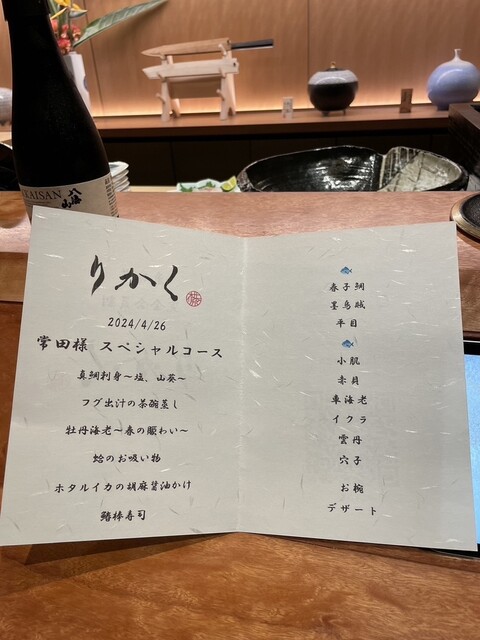 KAISAN
八海山
りかく
2024/4/26
常田様 スペシャルコース
真鯛刺身〜塩、山葵〜
フグ出汁の茶碗蒸し
牡丹海老〜春の賑わい〜
蛤のお吸い物
ホタルイカの胡麻醤油かけ
鰆棒寿司
春子鯛
墨烏賊
平目
小肌
赤貝
車海老
イクラ
雲丹
穴子
お椀
デザート